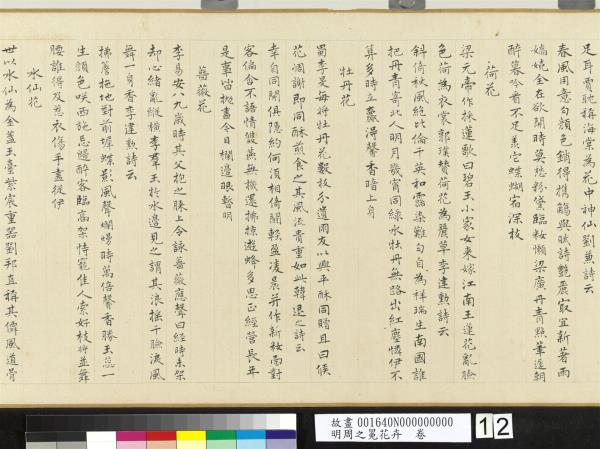 足耳賈耽稱海棠為花中神仙劉兼詩云
春風用意勻顏色銷得携觴與賦詩艷麗最宜新著雨
嬌嬈全在欲開時莫愁粉黛臨粧懶梁廣丹青點筆遲朝
醉暮吟看不足羨它蝴蝶宿深枝
荷花
梁元帝作採蓮歌曰碧玉小家女來嫁江南王蓮花亂臉
色荷葉為衣裳郭璞贊荷花為麗草李逵勲詩云
斜倚秋風絕比倫千英和露染難勻自為祥瑞生南國誰
把丹青寄北人明月幾宵同綠水牡丹無路出紅塵憐伊不
算多時立贏得馨香暗上身
牡丹花
蜀李昊每將牡丹花數枝分遺朋友以興平酥同贈且曰候
花凋謝即同酥煎食之其風流貴重如此韓退之詩云
幸自同開俱隱約何須相倚鬪輕盈凌晨并作新粧面對
客偏含不語情雙燕無機還拂掠遊蜂多思正經營長年
是事皆拋盡今日欄邊眼暫明
薔薇花
李易安八九歲時其父抱之膝上令詠薔薇應聲曰經時未架
却心緒亂縱橫李羣玉於水邊見之謂其浪搖千臉流風
舞一身香李逵勲詩云
拂薝拖地對前墀蝶影風聲爛熳時萬倍馨香勝玉蕊一
生顏色笑西施忘歸醉客臨高架恃寵佳人索好枝將並舞
腰誰得及惹衣傷手盡從伊
水仙花
世以水仙為金盞玉臺紫宸重器劉邦直稱其偉風道骨
故畫 001640N000000000
明周之冕花卉 卷
12